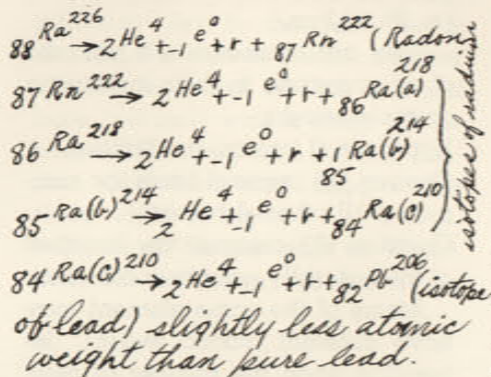 88 Ra 226 → 2 He 4 + -1 e 0 + r + 87 Rn 222 (Radon)
87 Rn 222 → 2 He 4 + -1 e 0 + r + 86 Ra(a) 218
86 Ra 218 → 2 He 4 + -1 e 0 + r + 1 85 Ra(b) 214
85 Ra(b) 214 → 2 He 4 + -1 e 0 + r + 84 Ra(c) 210
isotopes of radium
84 Ra(c) 210 → 2 He 4 + -1 e 0 + r + 82 Pb 206 (isotope
of lead) slightly less atomic
weight than pure lead.